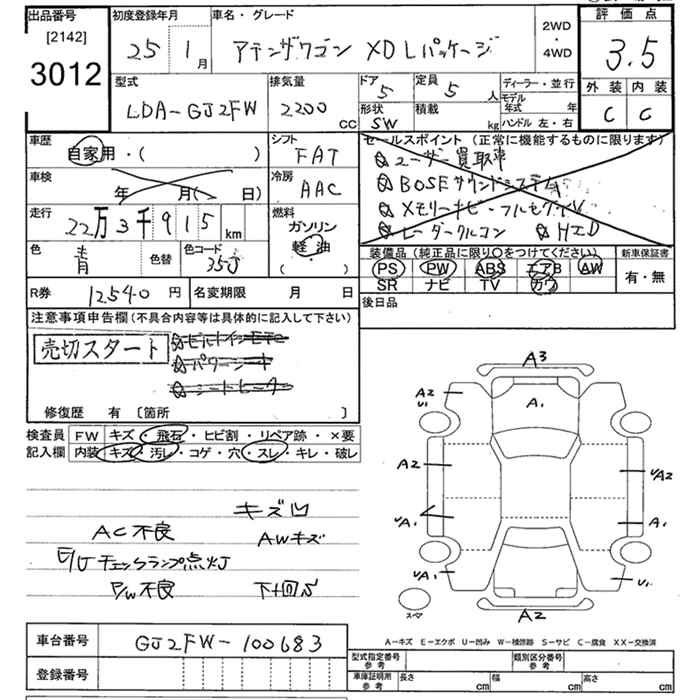 出品番号 初度登録年月 車名・グレード 2WD ・ 4WD 評価点
[2142]
3012 25 1月 アテンザワゴン XDLパッケージ 3.5
型式 排気量 ドア 5 定員 5人 ディーラー・並行 外装 内装
LDA-GJ2FW 2200 CC 形状 SW 積載 kg モデル年式 年 C C
ハンドル 左・右
車歴 シフト セールスポイント (正常に機能するものに限ります)
自家用・( ) FAT ユーザー買取車
車検 年 月( 日) 冷房 AAC BOSEサウンドシステム
メモリーナビ・フルセグTV
走行 22万3千915km 燃料 ガソリン 軽油 ( ・ ) レーダークルコン HID
色 青 色替 色コード 35J
装備品 (純正品に限り○をつけてください) 新車保証書
PS PW ABS エアB AW 有・無
SR ナビ TV カワ
R券 12540円 名変期限 月 日 後日品
注意事項申告欄 (不具合内容等は具体的に記入して下さい)
売切スタート
パワーシート
シートヒーター
修復歴 有 [箇所 ]
検査員記入欄 FW キズ・飛石・ヒビ割・リペア跡・×要
内装 キズ・汚レ・コゲ・穴・スレ・キレ・破レ
キズ凹
AC不良 AWキズ
E/Gチェックランプ点灯
P/W不良 下廻りS
A3
A2 U1 A1
A2 UA2
UA1 A1
UA1 U1
スペア A2
A-キズ E-エクボ U-凹み W-補修跡 S-サビ C-腐食 XX-交換済
車台番号 GJ2FW-100683
登録番号
型式指定番号 参考 類別区分番号 参考
車庫証明用 参考 長さ cm 幅 cm 高さ cm